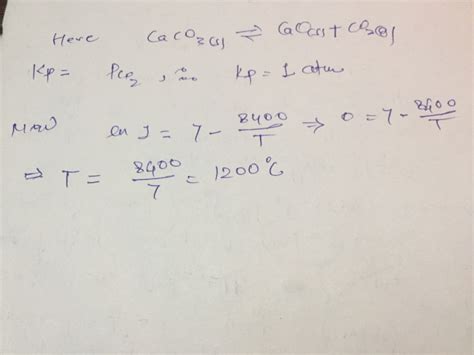 Here CaCO3(s) ⇌ CaO(s) + CO2(g)
Kp = PCO2, Kp = 1 atm
Now ln 1 = 7 - 8400/T ⇒ 0 = 7 - 8400/T
⇒ T = 8400/7 = 1200°C